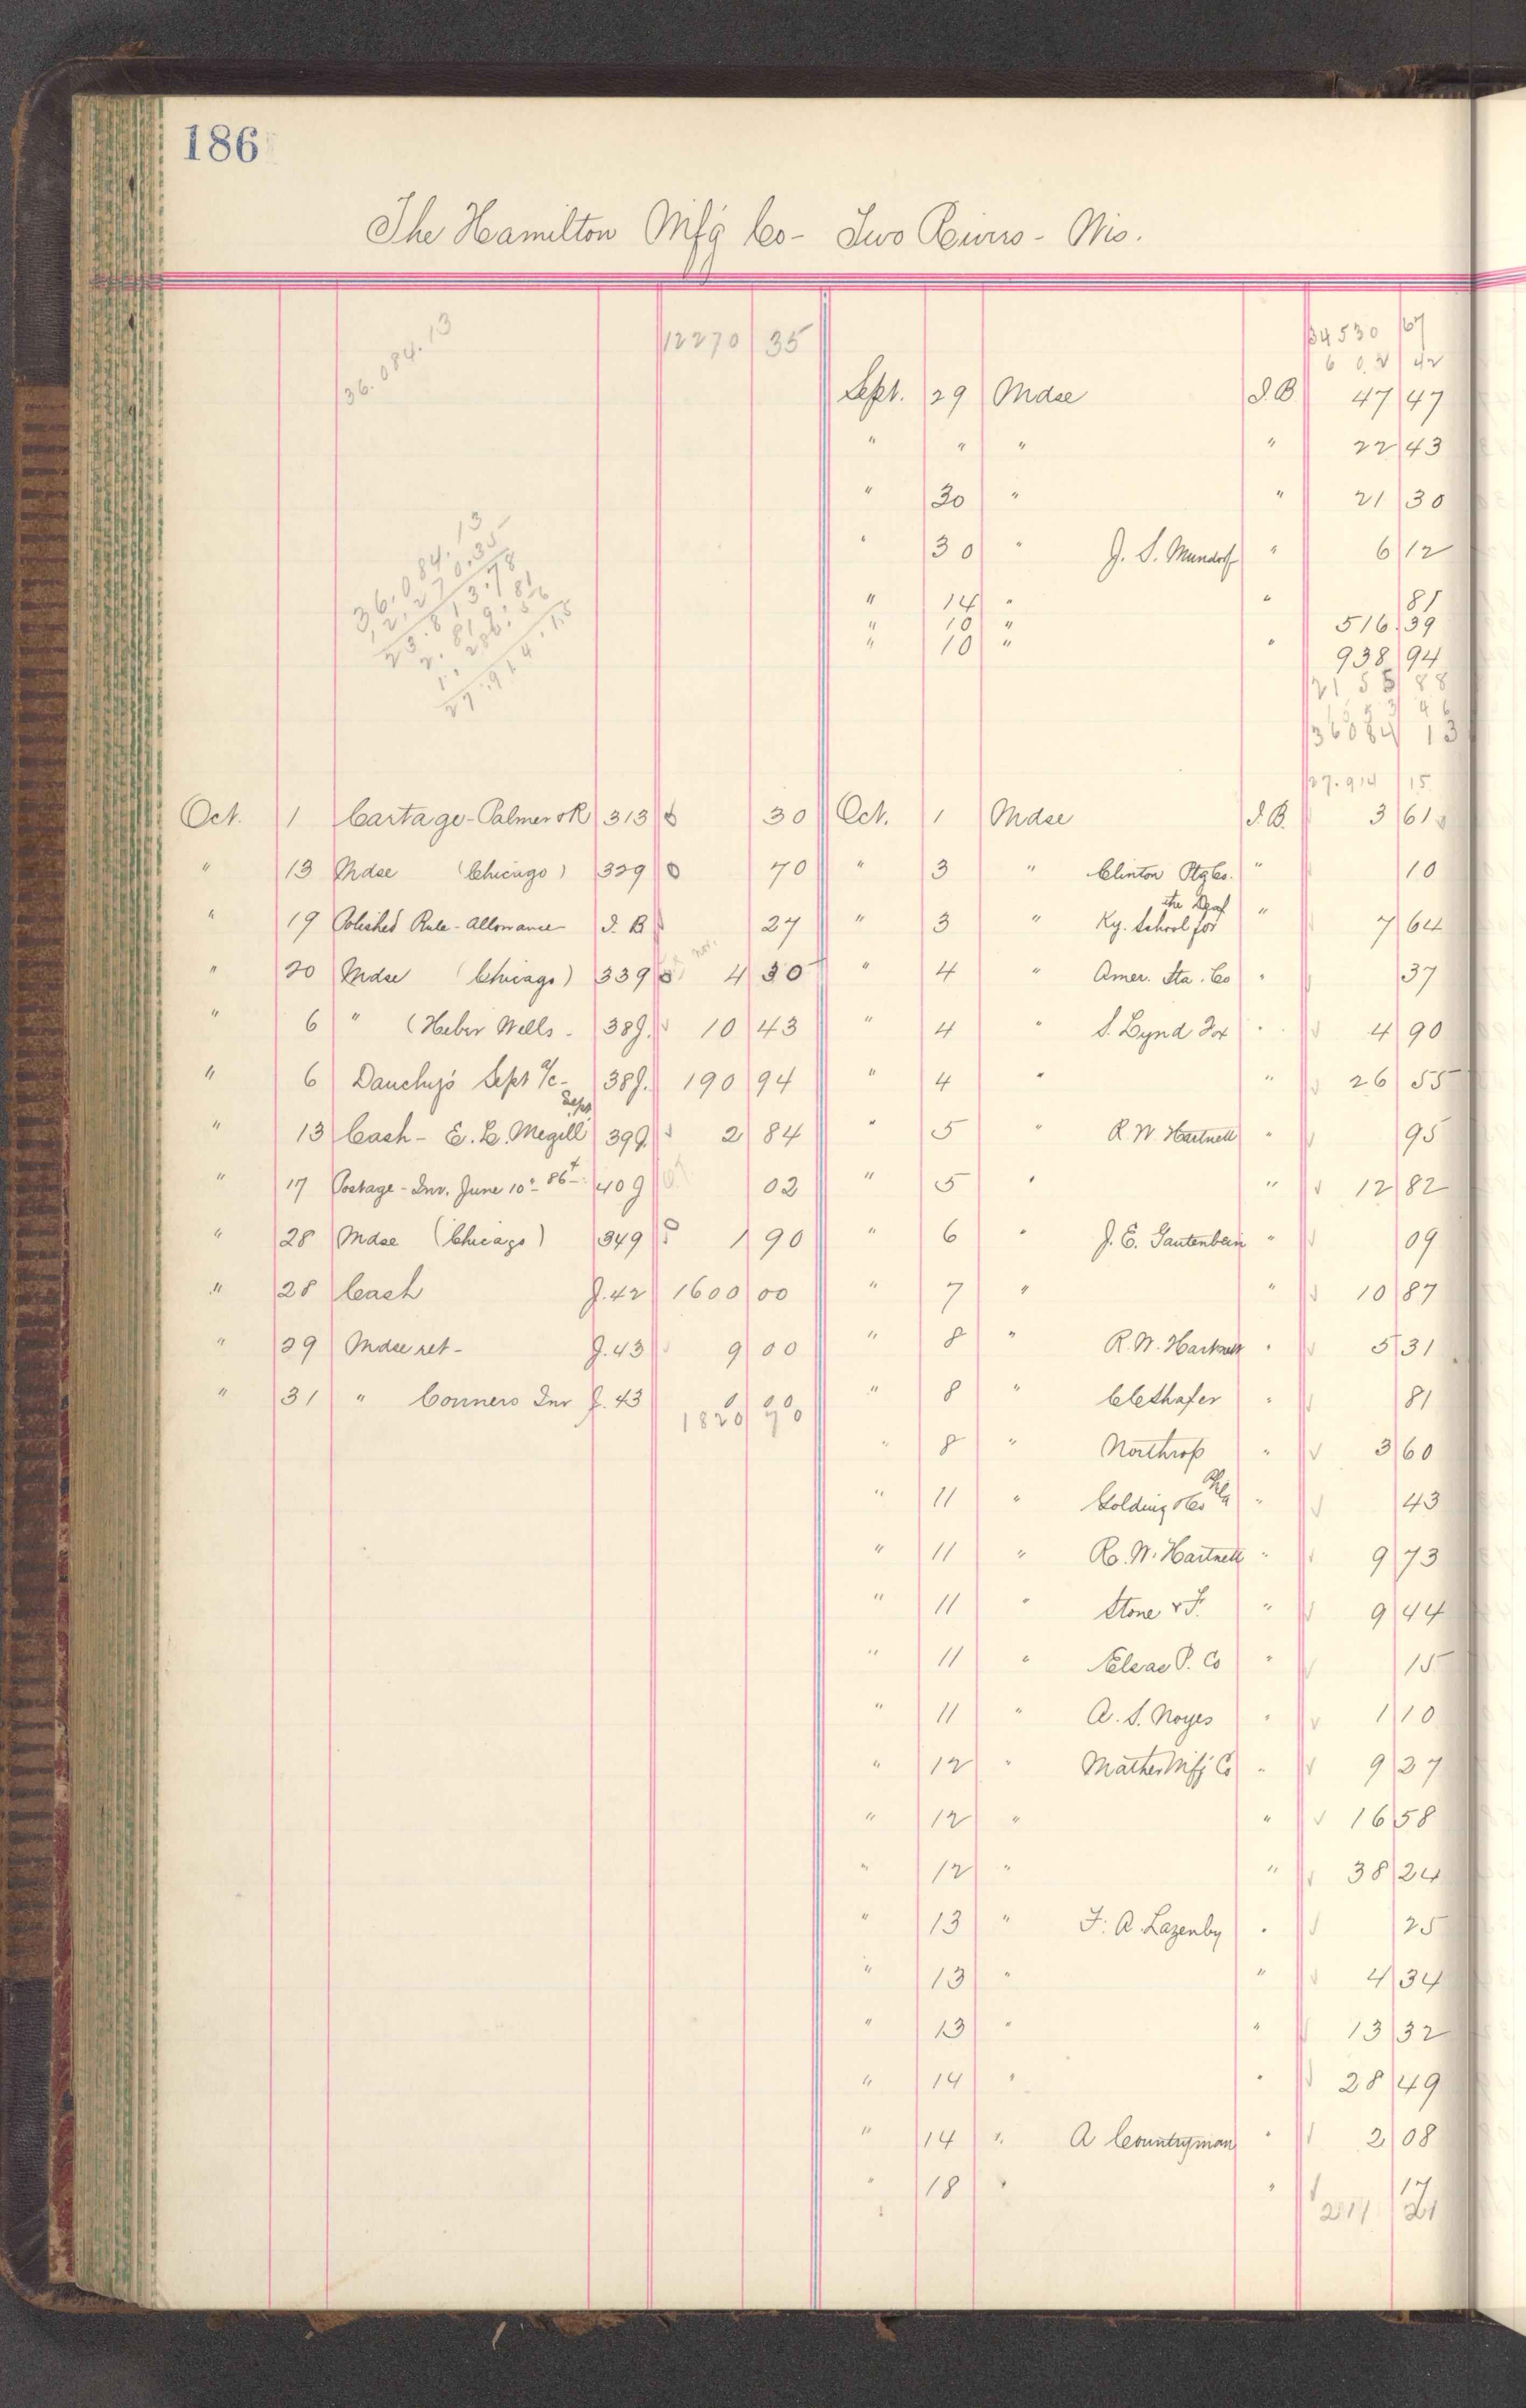 186
The Hamilton Mf'g Co - Two Rivers - Wis.
12270 35
34530 67
36.084.13
6 0.2 42
Sept. 29 Mdse I.B. 47 47
" " " " 22 43
" 30 " " 21 30
" 30 " J. S. Mundorf " 6 12
" 14 " " 81
" 10 " 516.39
" 10 " " 938 94
36,084.13
12,270.35
23.813.78
2.819.81
1.286.56
27.914.15
36084 13
27.914 15
Oct. 1 Cartage - Palmer & R 313 30
" 13 Mdse (Chicago) 329 70
" 19 Polished Rule - Allowance I.B 27
" 20 Mdse (Chicago) 339 Nov. 4 30
" 6 " (Heber Wells - 38J. 10 43
" 6 Dauchy's Sept a/c - 38J. 190 94
" 13 Cash - E. L. Megill Sept 39J. 2 84
" 17 Postage - Inv. June 10" - 86 - 40J 02
" 28 Mdse (Chicago) 349 1 90
" 28 Cash J.42 1600 00
" 29 Mdse ret - J.43 9 00
" 31 " Conners Inv J. 43 0 00
1820 70
Oct. 1 Mdse I.B. 3 61
" 3 " Clinton Ptg Co. " 10
" 3 " Ky. School for the Deaf " 7 64
" 4 " Amer. Sta. Co " 37
" 4 " S. Lynd Fox " 4 90
" 4 " " 26 55
" 5 " R. W. Hartnell " 95
" 5 " " 12 82
" 6 " J. E. Gautenbein " 09
" 7 " " 10 87
" 8 " R. W. Hartnell " 5 31
" 8 " " 81
" 8 " Northrop " 3 60
" 11 " Golding & Co Phila " 43
" 11 " R. W. Hartnell " 9 73
" 11 " Stone & F. " 9 44
" 11 " P. Co " 15
" 11 " A. S. Noyes " 1 10
" 12 " Mather Mfg Co " 9 27
" 12 " " 16 58
" 12 " " 38 24
" 13 " F. A. Lazenby " 25
" 13 " " 4 34
" 13 " " 13 32
" 14 " " 28 49
" 14 " A Countryman " 2 08
" 18 " " 17
211 21